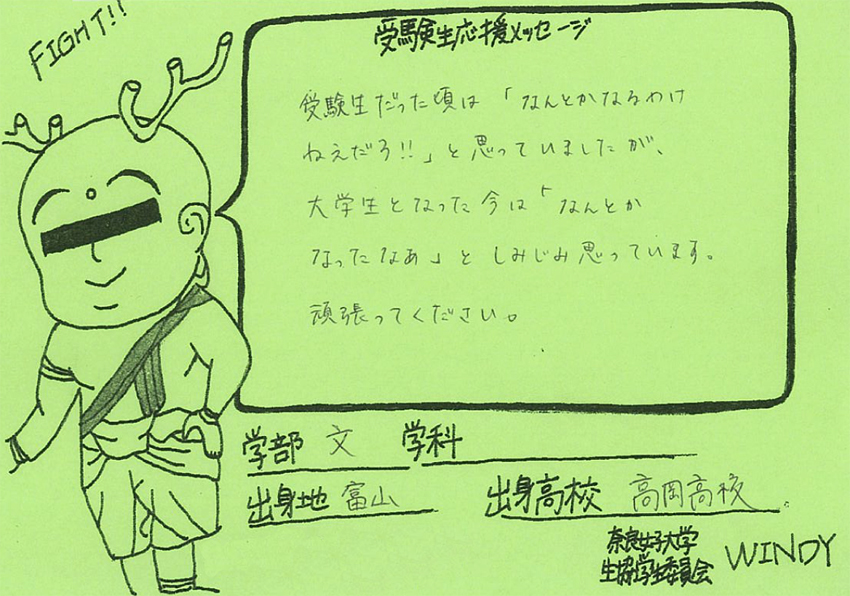 FIGHT!!
受験生応援メッセージ
受験生だった頃は「なんとかなるわけ
ねえだろ!!」と思っていましたが、
大学生となった今は「なんとか
なったなぁ」としみじみ思っています。
頑張ってください。
学部 文 学科
出身地 富山 出身高校 高岡高校
奈良女子大学
生協学生委員会 WINDY